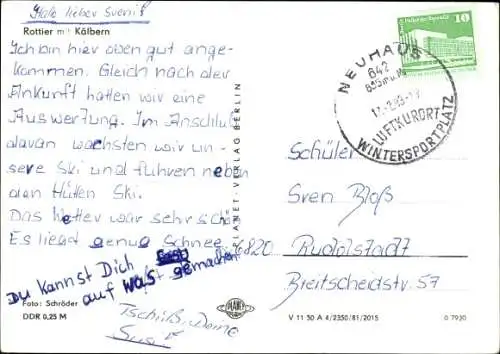 Hallo lieber Sven!
Rottier mit Kälbern
Ich bin hier oben gut ange-
kommen. Gleich nach der
Ankunft hatten wir eine
Auswertung. Im Anschluß
davan wachsten wir un-
sere Ski und fuhren neben
den Hütten Ski.
Das Wetter war sehr schön
Es liegt genug Schnee.
Du kannst Dich
auf was gemachen!
Tschüß, Deine
Foto: Schröder
DDR 0,25 M
PLANET-VERLAG BERLIN
PLANET
V 11 50 A 4/2350/81/2015
G 7920
10
NEUHAUS
642
835m ü. M.
LUFTKURORT
WINTERSPORTPLATZ
Schüler
Sven Bloß
6820 Rudolstadt
Breitscheidstr. 57